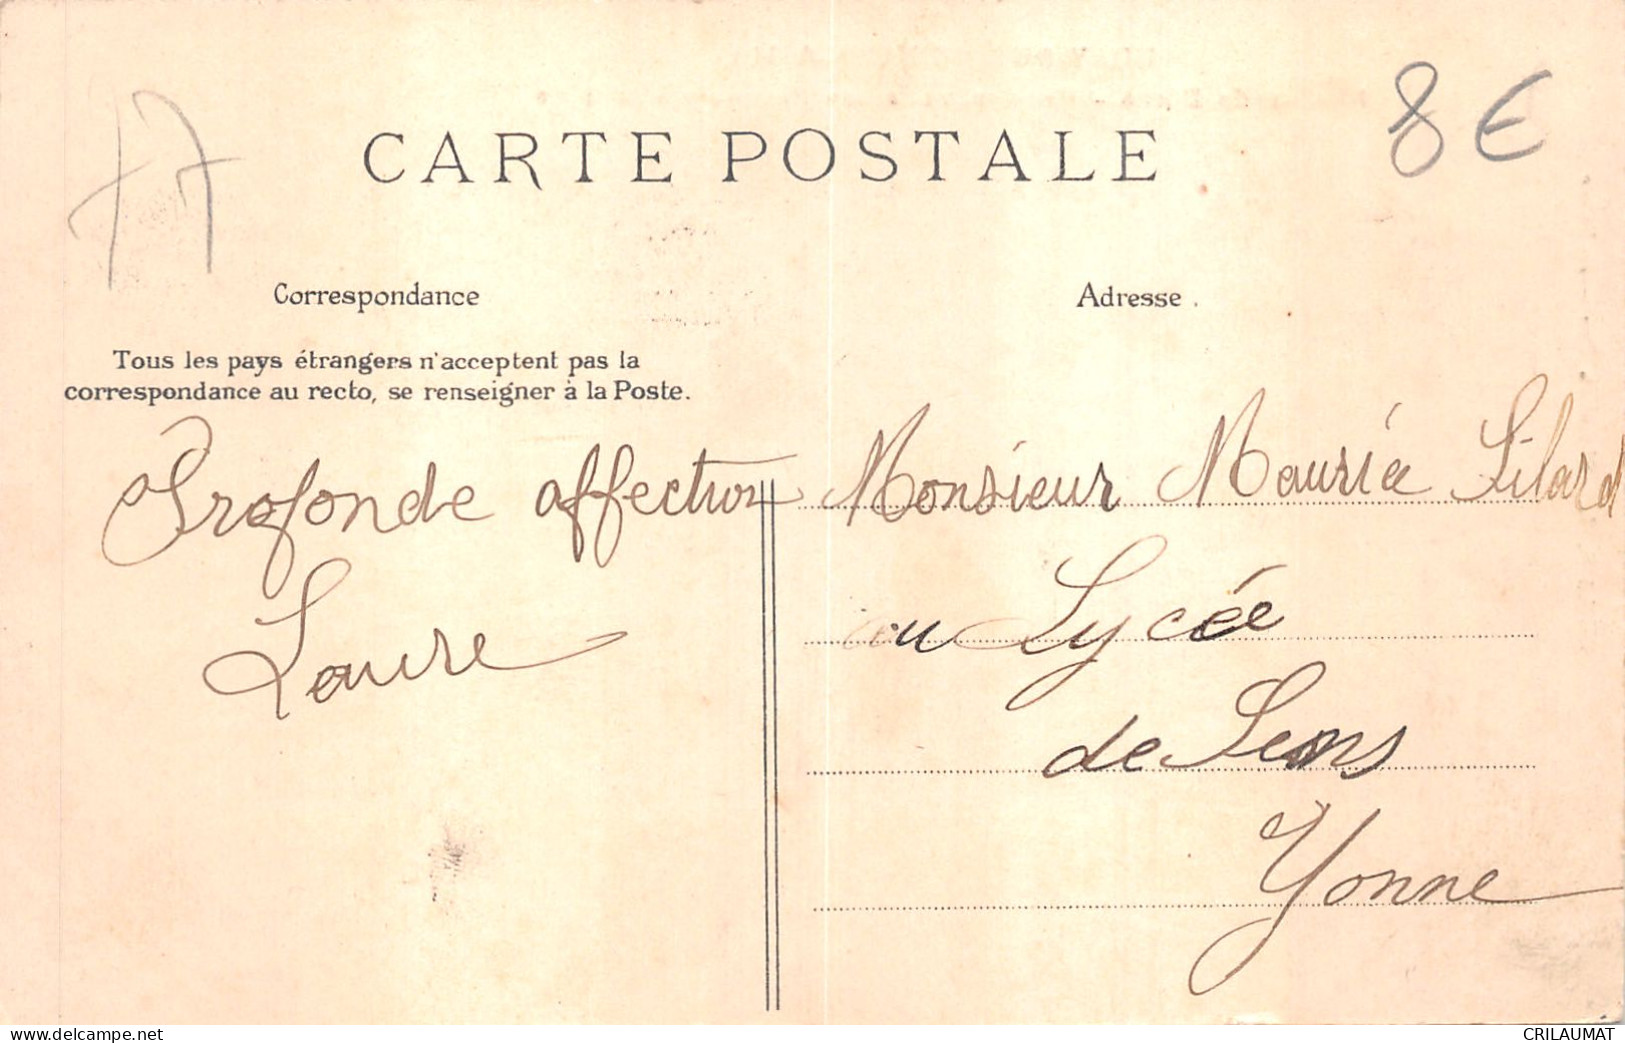 77
8€
CARTE POSTALE
Correspondance
Adresse.
Tous les pays étrangers n'acceptent pas la
correspondance au recto, se renseigner à la Poste.
Profonde affection
Laure
Monsieur Maurice
au Lycée
de Sens
Yonne
delcampe.net
CRILAUMAT